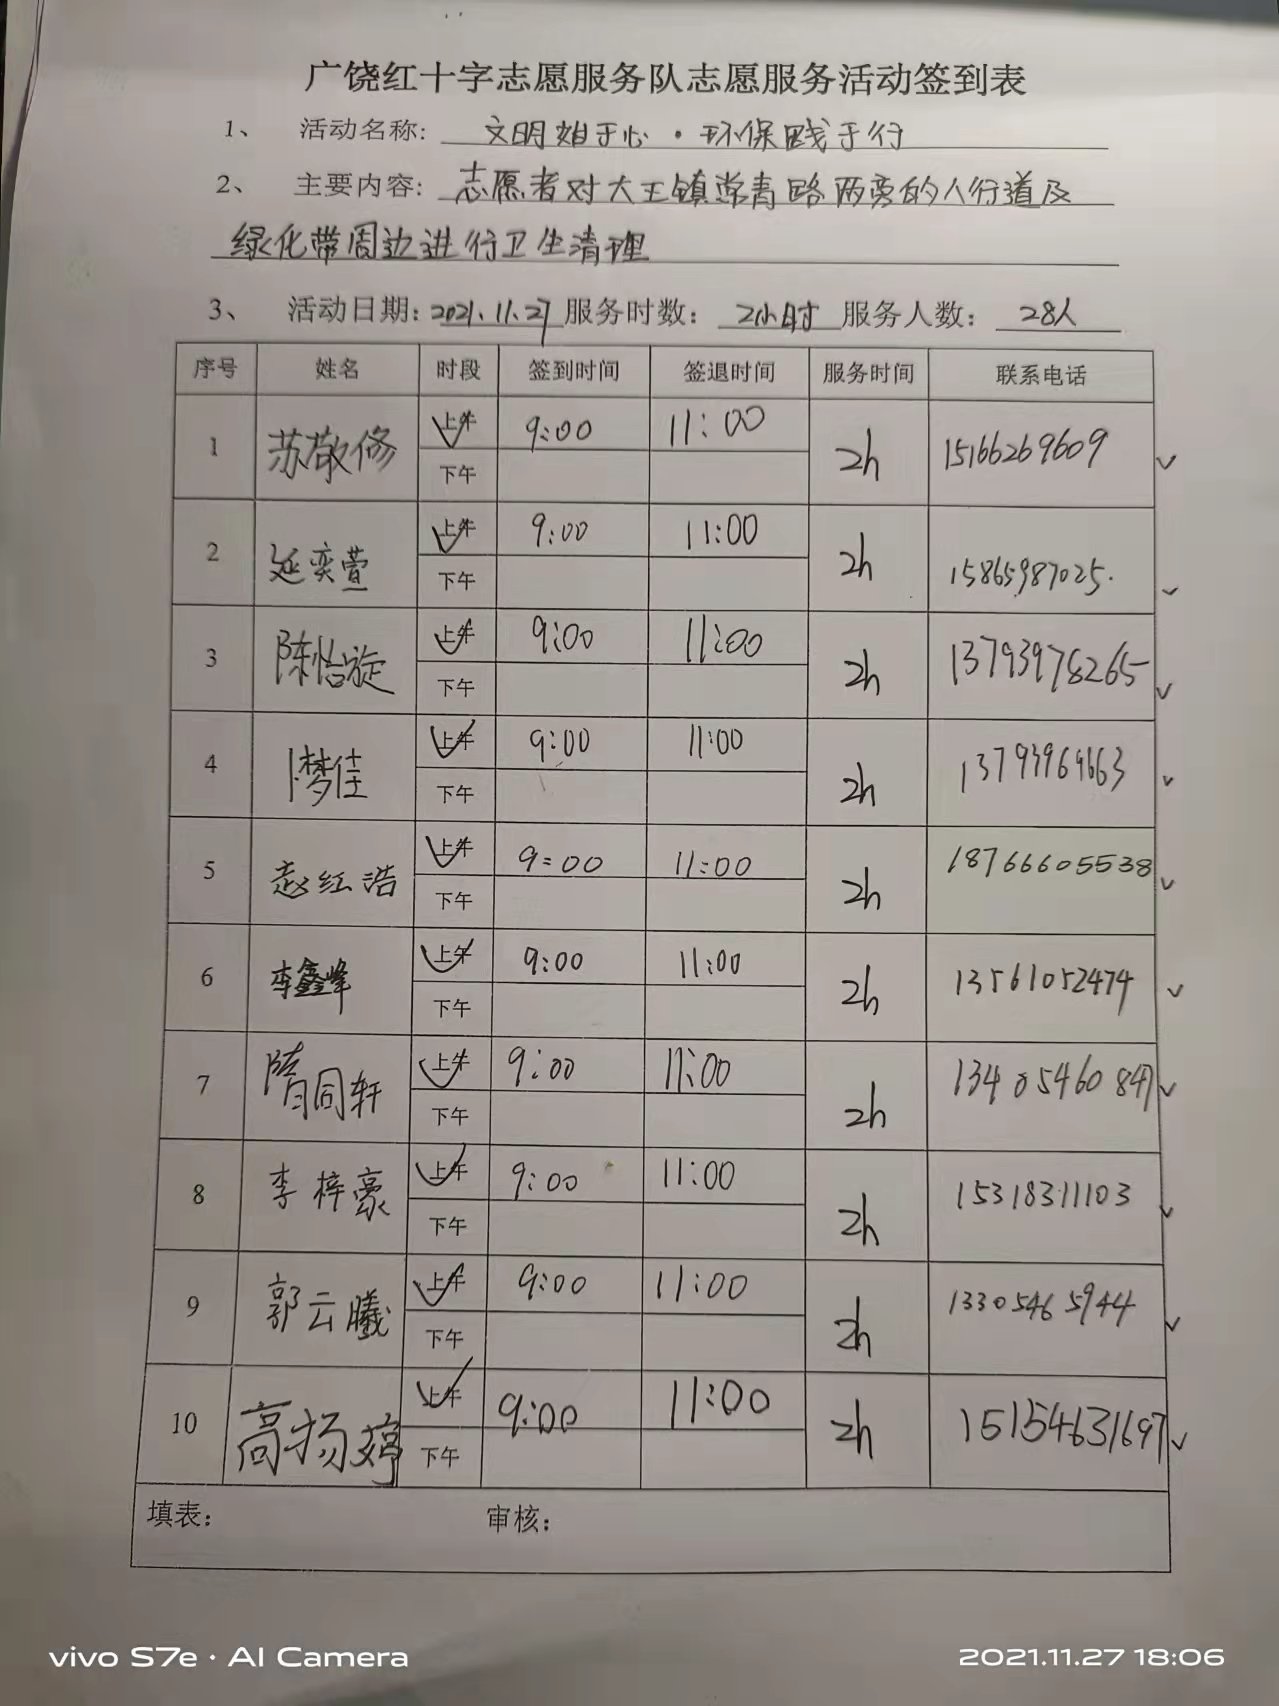 广饶红十字志愿服务队志愿服务活动签到表
1、 活动名称: 文明始于心·环保践于行
2、 主要内容: 志愿者对大王镇常青路两旁的人行道及
绿化带周边进行卫生清理
3、 活动日期: 2021.11.27 服务时数: 2小时 服务人数: 28人
序号 姓名 时段 签到时间 签退时间 服务时间 联系电话
1 苏敬修 上午 9:00 11:00 2h 15166269609
下午
2 延奕萱 上午 9:00 11:00 2h 15865987025.
下午
3 陈怡旋 上午 9:00 11:00 2h 13793978265
下午
4 卜梦佳 上午 9:00 11:00 2h 13793969663
下午
5 赵红浩 上午 9:00 11:00 2h 18766605538
下午
6 李鑫峰 上午 9:00 11:00 2h 13561052474
下午
7 隋同轩 上午 9:00 11:00 2h 13405460847
下午
8 李梓豪 上午 9:00 11:00 2h 15318311103
下午
9 郭云曦 上午 9:00 11:00 2h 13305465944
下午
10 高扬婷 上午 9:00 11:00 2h 15154631697
下午
填表: 审核:
vivo S7e · AI Camera 2021.11.27 18:06